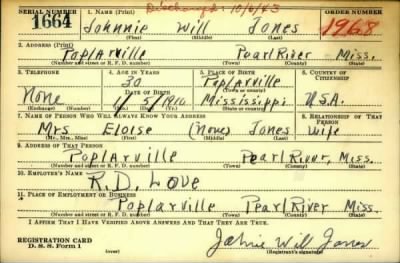 Discharged: 10/6/43
SERIAL NUMBER 1. NAME (Print) ORDER NUMBER
1664 Johnnie Will Jones 1968
(First) (Middle) (Last)
2. ADDRESS (Print)
Poplarville Pearl River Miss.
(Number and street or R. F. D. number) (Town) (County) (State)
3. TELEPHONE 4. AGE IN YEARS 5. PLACE OF BIRTH 6. COUNTRY OF CITIZENSHIP
30 Poplarville
None DATE OF BIRTH (Town or county)
5 1910 Mississippi U.S.A.
(Exchange) (Number) (Mo.) (Day) (Yr.) (State or country)
7. NAME OF PERSON WHO WILL ALWAYS KNOW YOUR ADDRESS 8. RELATIONSHIP OF THAT PERSON
Mrs Eloise (None) Jones wife
(Mr., Mrs., Miss) (First) (Middle) (Last)
9. ADDRESS OF THAT PERSON
Poplarville Pearl River, Miss.
(Number and street or R. F. D. number) (Town) (County) (State)
10. EMPLOYER'S NAME
R.D. Love
11. PLACE OF EMPLOYMENT OR BUSINESS
Poplarville Pearl River Miss.
(Number and street or R. F. D. number) (Town) (County) (State)
I AFFIRM THAT I HAVE VERIFIED ABOVE ANSWERS AND THAT THEY ARE TRUE.
REGISTRATION CARD
D. S. S. Form 1 (over) Johnie Will Jones
(Registrant's signature)